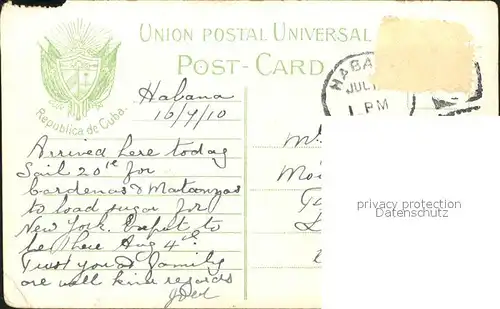 UNION POSTAL UNIVERSAL
POST-CARD
Republica de Cuba.
HABA
JUL 1
1 PM
Habana
16/7/10
Arrived here today
Sail 20th for
Cardenas & Matanzas
to load sugar for
New York. Expect to
be there Aug 4th.
Trust you & family
are well kind regards
privacy protection
Datenschutz